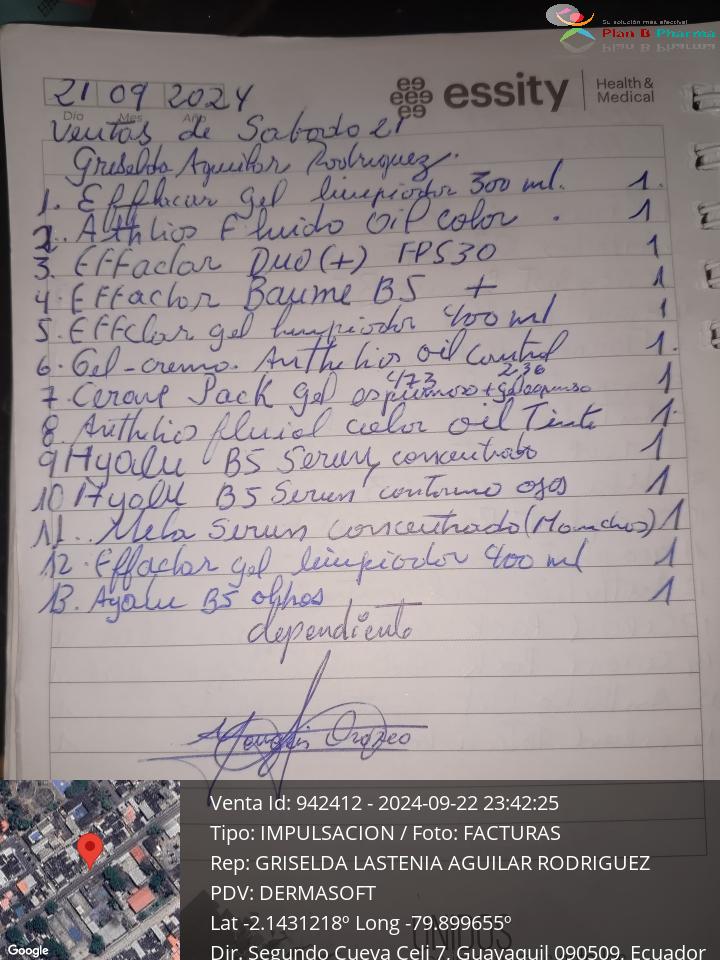 Su solución más efectiva!
Plan B Pharma
essity
Health &
Medical
21 09 2024
Día Mes Año
Ventas de Sabado 21
Griselda Aguilar Rodriguez.
1. Efflacar gel limpiador 300 ml. 1.
2.. Athlios Fluido Oil color . 1
3. Effaclar Duo (+) FPS30 1
4. Effaclar Baume B5 + 1
5. Effclar gel limpiador 400 ml 1
6. Gel-crema. Anthelios oil control 1.
473 236
7. Cerave Pack gel espumoso + gel espumoso 1
8. Anthelios fluid color oil Tinte 1.
9 Hyalu B5 Serum, concentrado 1
10 Hyalu B5 Serum contorno ojos 1
11.. Mela Serum concentrado (Manchas) 1
12. Effaclar gel limpiador 400 ml 1
13. Ayalu B5 ohhos 1
dependiente
Orozco
Venta Id: 942412 - 2024-09-22 23:42:25
Tipo: IMPULSACION / Foto: FACTURAS
Rep: GRISELDA LASTENIA AGUILAR RODRIGUEZ
PDV: DERMASOFT
Lat -2.1431218º Long -79.899655º
Dir. Segundo Cueva Celi 7, Guayaquil 090509, Ecuador
Google